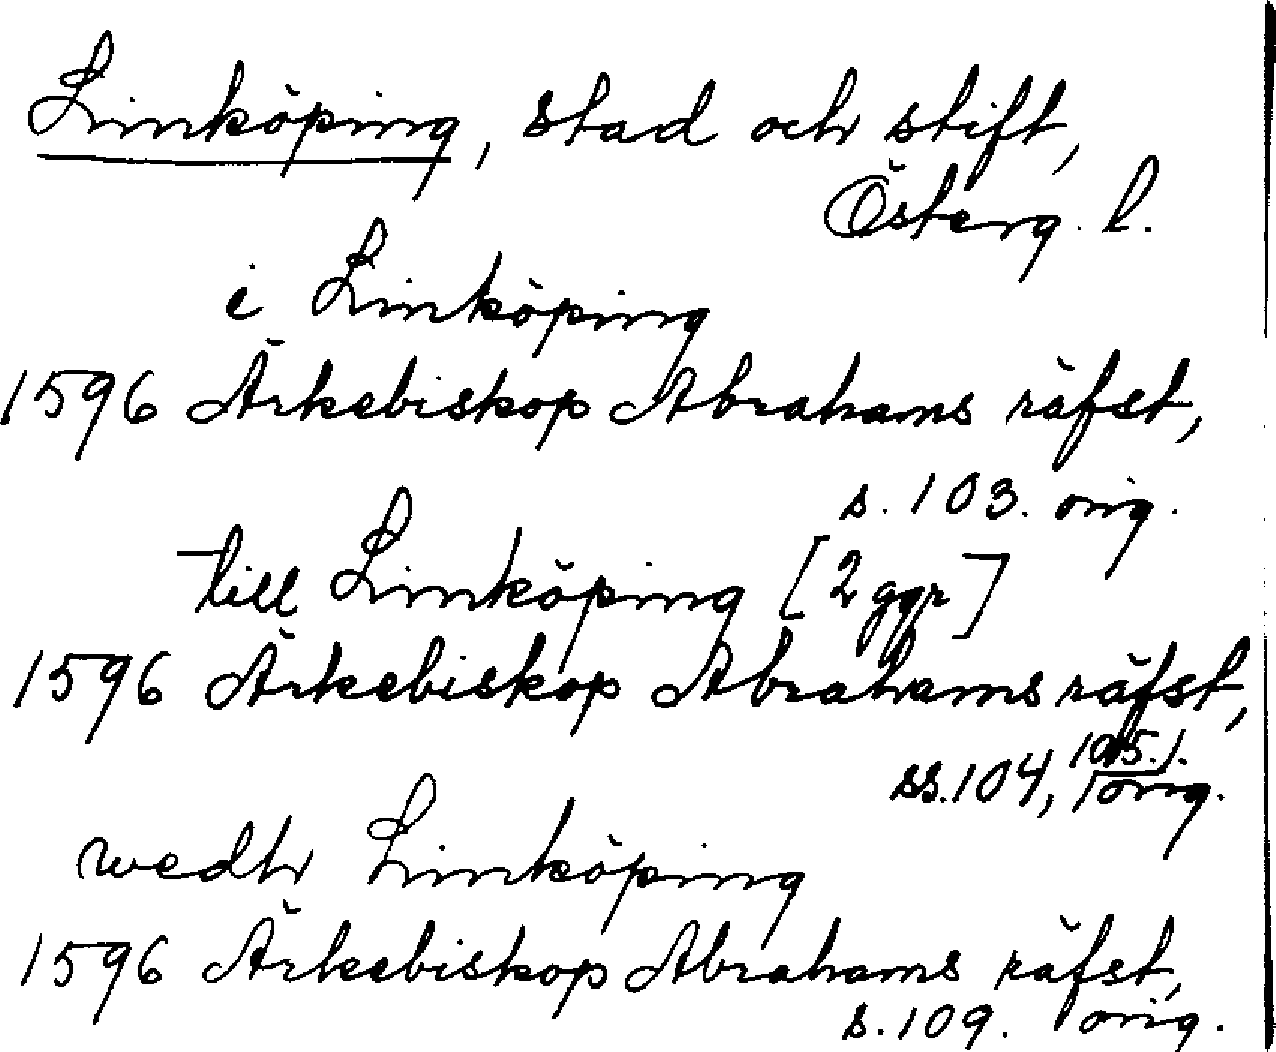 Linköping, stad och stift,
Österg. l.
i Linköping
1596 Ärkebiskop Abrahams räfst,
s. 103. orig.
till Linköping [2 ggr]
1596 Ärkebiskop Abrahams räfst,
ss. 104, 105.
orig.
wedh Linköping
1596 Ärkebiskop Abrahams räfst,
s. 109. orig.